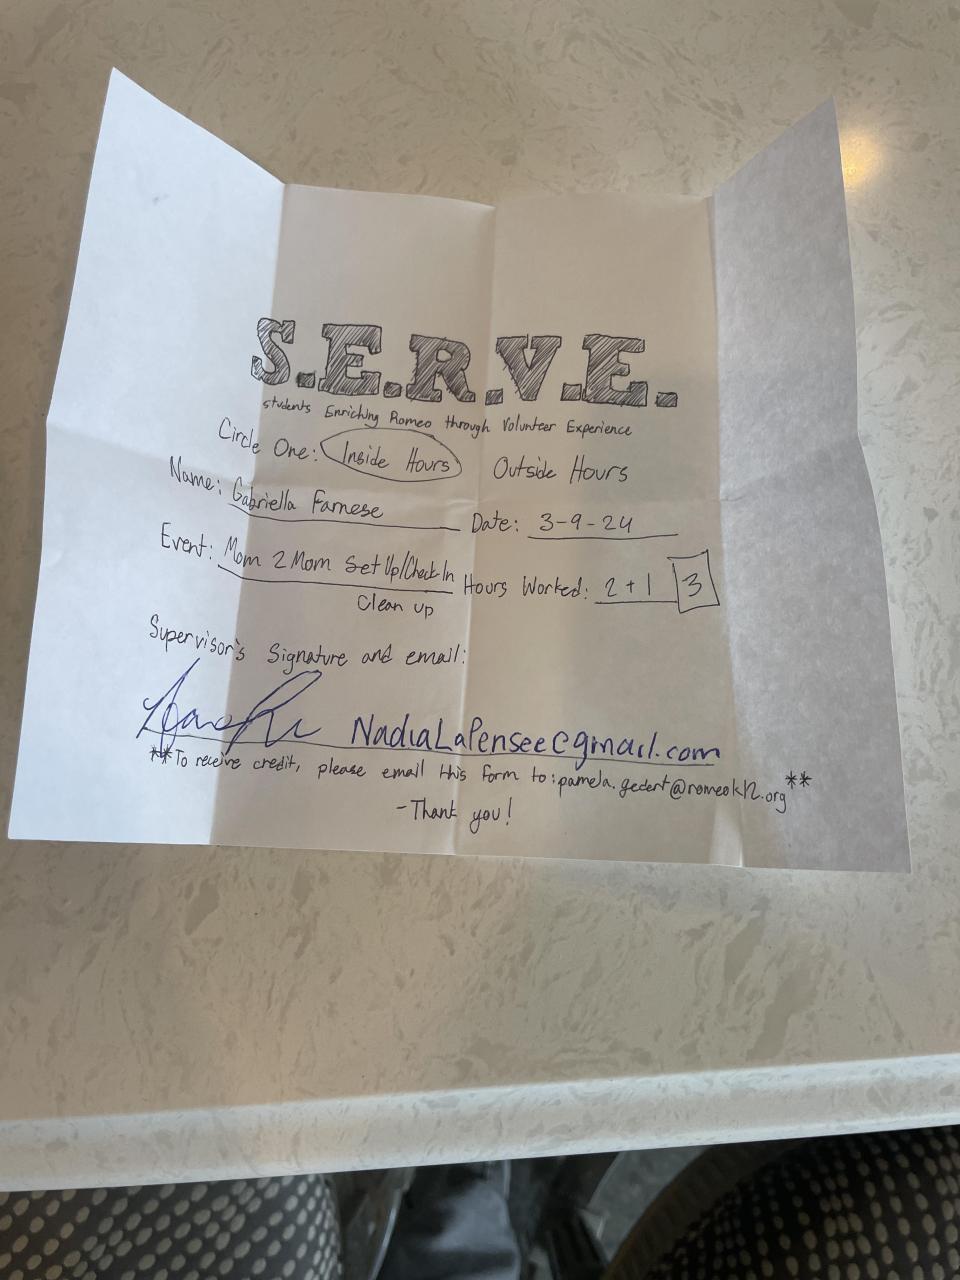 S.E.R.V.E.
students Enriching Romeo through Volunteer Experience
Circle One: Inside Hours Outside Hours
Name: Gabriella Farnese Date: 3-9-24
Event: Mom 2 Mom Set Up/Check-In Hours Worked: 2+1 3
Clean up
Supervisor's Signature and email:
NadiaLaPensee@gmail.com
**To receive credit, please email this form to: pamela.gedert@romeok12.org**
-Thank you!